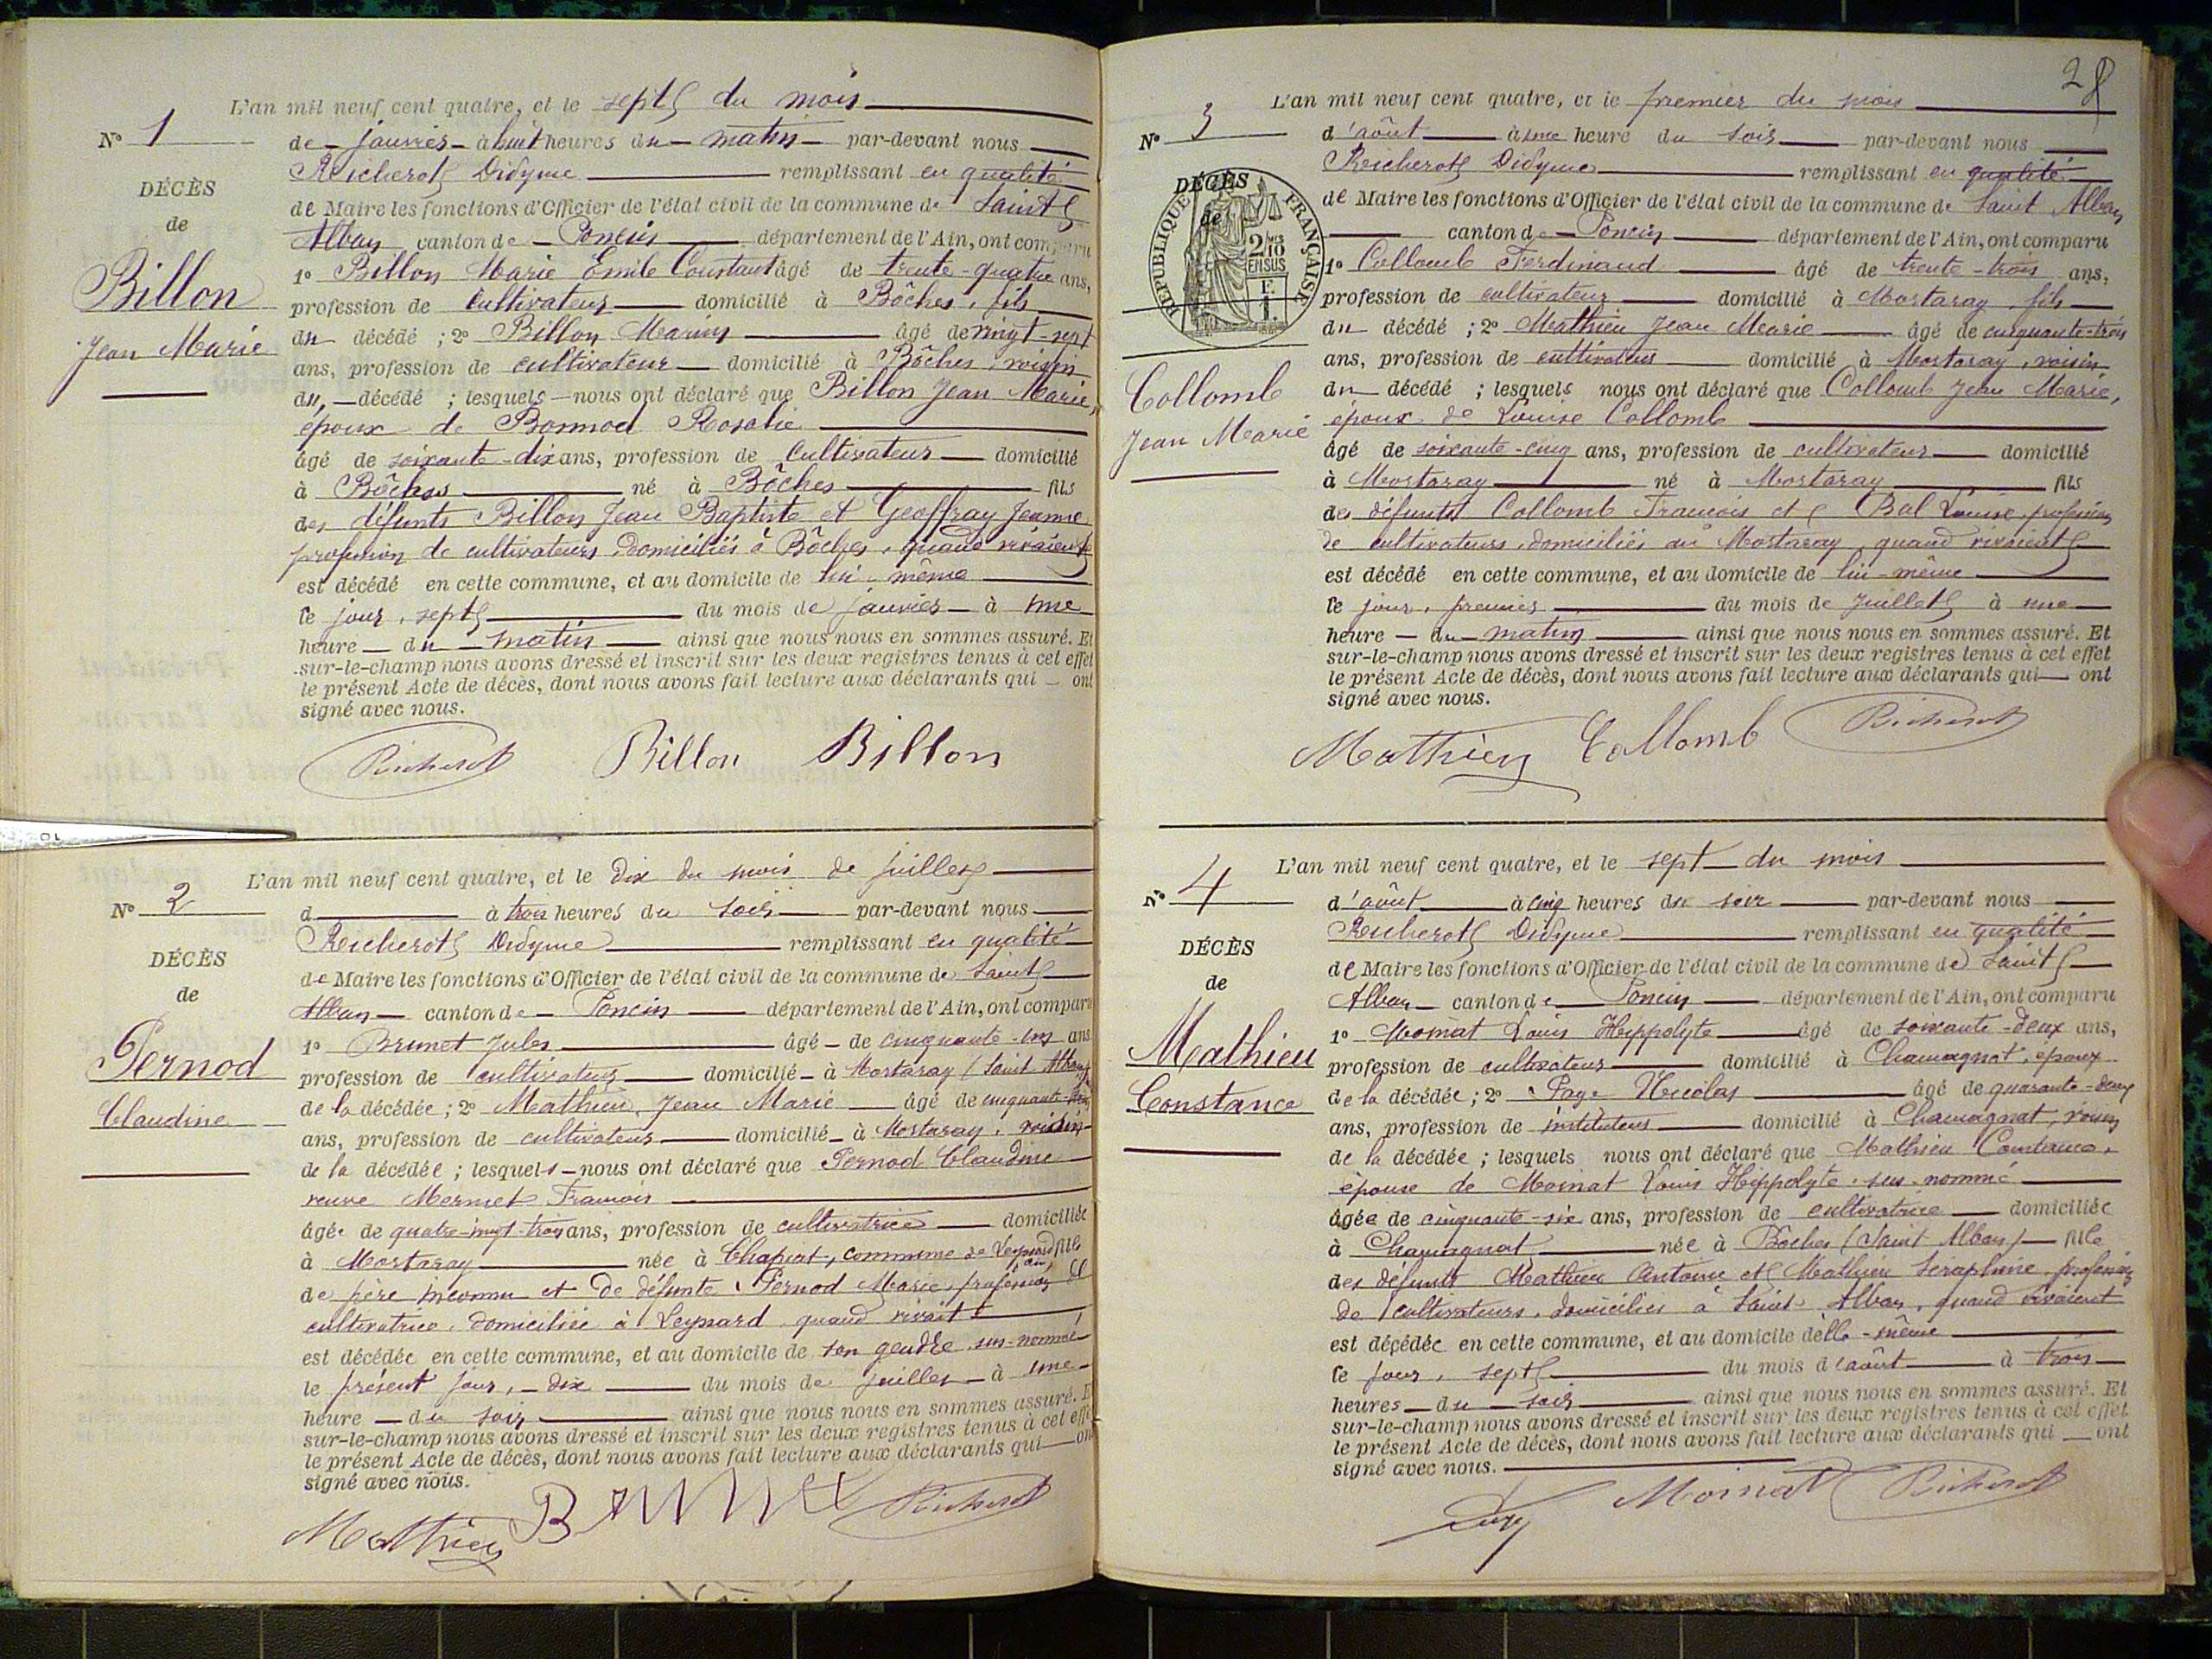 L'an mil neuf cent quatre, et le sept du mois
N° 1
de janvier à huit heures du matin par-devant nous
DÉCÈS
Reicherot Didyme remplissant en qualité
de Maire les fonctions d'Officier de l'état civil de la commune de Saint
de
Alban canton de Poncin département de l'Ain, ont comparu
Billon
1° Billon Marie Emile Constant âgé de trente-quatre ans,
profession de cultivateur domicilié à Bôches, fils
Jean Marie
du décédé ; 2° Billon Marius âgé de vingt-sept
ans, profession de cultivateur domicilié à Bôches, voisin
du décédé ; lesquels nous ont déclaré que Billon Jean Marie,
époux de Bonnod Rosalie
âgé de soixante-dix ans, profession de cultivateur domicilié
à Bôches né à Bôches fils
des défunts Billon Jean Baptiste et Geoffray Jeanne
profession de cultivateurs domiciliés à Bôches, quand vivaient
est décédé en cette commune, et au domicile de lui-même
le jour, sept du mois de janvier à une
heure du matin ainsi que nous nous en sommes assuré. Et
sur-le-champ nous avons dressé et inscrit sur les deux registres tenus à cet effet
le présent Acte de décès, dont nous avons fait lecture aux déclarants qui ont
signé avec nous.
Richerot Billon Billon
L'an mil neuf cent quatre, et le dix du mois de juillet
N° 2
d à trois heures du soir par-devant nous
DÉCÈS
Reicherot Didyme remplissant en qualité
de Maire les fonctions d'Officier de l'état civil de la commune de Saint
de
Alban canton de Poncin département de l'Ain, ont comparu
Pernod
1° Brunet Jules âgé de cinquante-un ans
profession de cultivateur domicilié à Mortaray (Saint Alban)
Claudine
de la décédée ; 2° Mathieu, Jean Marie âgé de cinquante-trois
ans, profession de cultivateur domicilié à Mortaray, voisin
de la décédée ; lesquels nous ont déclaré que Pernod Claudine
veuve Mermet François
âgée de quatre-vingt-trois ans, profession de cultivatrice domiciliée
à Mortaray née à Chapiat, commune de Leyssard fille
de père inconnu et de défunte Pernod Marie, profession de
cultivatrice domiciliée à Leyssard quand vivait
est décédée en cette commune, et au domicile de son gendre sus-nommé
le présent jour, dix du mois de juillet à une
heure du soir ainsi que nous nous en sommes assuré. E
sur-le-champ nous avons dressé et inscrit sur les deux registres tenus à cet effe
le présent Acte de décès, dont nous avons fait lecture aux déclarants qui on
signé avec nous.
Mathieu Richerot
28
L'an mil neuf cent quatre, et le premier du mois
N° 3
d'août à une heure du soir par-devant nous
DÉCÈS
Reicherot Didyme remplissant en qualité
de
de Maire les fonctions d'Officier de l'état civil de la commune de Saint Alban
RÉPUBLIQUE FRANÇAISE
2/10 EN SUS
canton de Poncin département de l'Ain, ont comparu
1° Collomb Ferdinand âgé de trente-trois ans,
profession de cultivateur domicilié à Mortaray fils
du décédé ; 2° Mathieu Jean Marie âgé de cinquante-trois
ans, profession de cultivateur domicilié à Mortaray, voisin
Collomb
du décédé ; lesquels nous ont déclaré que Collomb Jean Marie,
Jean Marie
époux de Louise Collomb
âgé de soixante-cinq ans, profession de cultivateur domicilié
à Mortaray né à Mortaray fils
des défunts Collomb François et Bal Louise, profession
de cultivateurs, domiciliés au Mortaray, quand vivaient
est décédé en cette commune, et au domicile de lui-même
le jour, premier du mois de Juillet à une
heure du matin ainsi que nous nous en sommes assuré. Et
sur-le-champ nous avons dressé et inscrit sur les deux registres tenus à cet effet
le présent Acte de décès, dont nous avons fait lecture aux déclarants qui ont
signé avec nous.
Mathieu Collomb Richerot
L'an mil neuf cent quatre, et le sept du mois
N° 4
d'août à cinq heures du soir par-devant nous
DÉCÈS
Reicherot Didyme remplissant en qualité
de
de Maire les fonctions d'Officier de l'état civil de la commune de Saint
Alban canton de Poncin département de l'Ain, ont comparu
1° Moinat Louis Hippolyte âgé de soixante-deux ans,
Mathieu
profession de cultivateur domicilié à Chamagnat, époux
Constance
de la décédée ; 2° Page Nicolas âgé de quarante-deux
ans, profession de instituteur domicilié à Chamagnat, voisin
de la décédée ; lesquels nous ont déclaré que Mathieu Constance,
épouse de Moinat Louis Hippolyte sus-nommé
âgée de cinquante-six ans, profession de cultivatrice domiciliée
à Chamagnat née à Bôches (Saint Alban) fille
des défunts Mathieu Antoine et Mathieu Séraphine, profession
de cultivateurs, domiciliés à Saint Alban, quand vivaient
est décédée en cette commune, et au domicile d'elle-même
le jour, sept du mois d'août à trois
heures du soir ainsi que nous nous en sommes assuré. Et
sur-le-champ nous avons dressé et inscrit sur les deux registres tenus à cet effet
le présent Acte de décès, dont nous avons fait lecture aux déclarants qui ont
signé avec nous.
Moinat Richerot